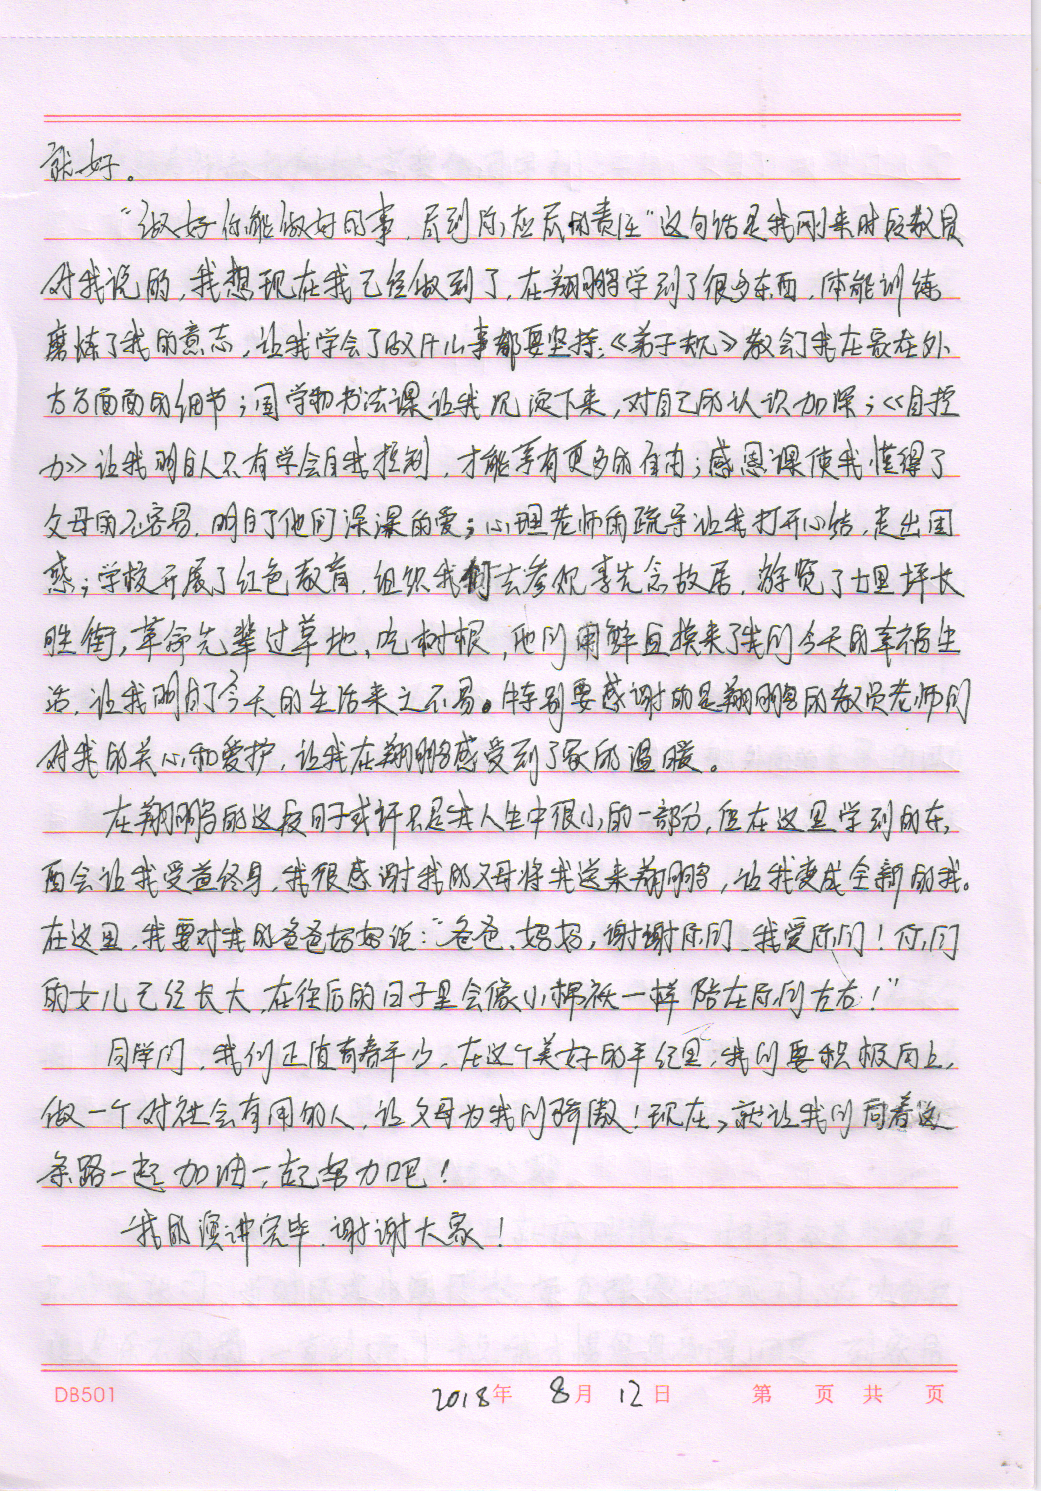 就好。
“做好你能做好的事，尽到你应尽的责任”这句话是我刚来时段教员
对我说的，我想现在我已经做到了，在翔鹏学到了很多东西，体能训练
磨炼了我的意志，让我学会了做什么事都要坚持；《弟子规》教会了我在家在外
方方面面的细节；国学和书法课让我沉淀下来，对自己的认识加深；《自控
力》让我明白人只有学会自我控制，才能享有更多的自由；感恩课使我懂得了
父母的不容易，明白了他们深深的爱；心理老师的疏导让我打开心结，走出困
惑；学校开展了红色教育，组织我们去参观李先念故居，游览了七里坪长
胜街，革命先辈过草地、吃树根，他们用鲜血换来了我们今天的幸福生
活，让我明白了今天的生活来之不易。特别要感谢的是翔鹏的教员老师们
对我的关心和爱护，让我在翔鹏感受到了家的温暖。
在翔鹏的这段日子或许只是我人生中很小的一部分，但在这里学到的东
西会让我受益终身，我很感谢我的父母将我送来翔鹏，让我变成全新的我。
在这里，我要对我的爸爸妈妈说：“爸爸、妈妈，谢谢你们，我爱你们！你们
的女儿已经长大，在往后的日子里会像小棉袄一样陪在你们左右！”
同学们，我们正值青春年少，在这个美好的年纪里，我们要积极向上，
做一个对社会有用的人，让父母为我们骄傲！现在，就让我们向着这
条路一起加油，一起努力吧！
我的演讲完毕，谢谢大家！
DB501 2018年 8月 12日 第 页 共 页